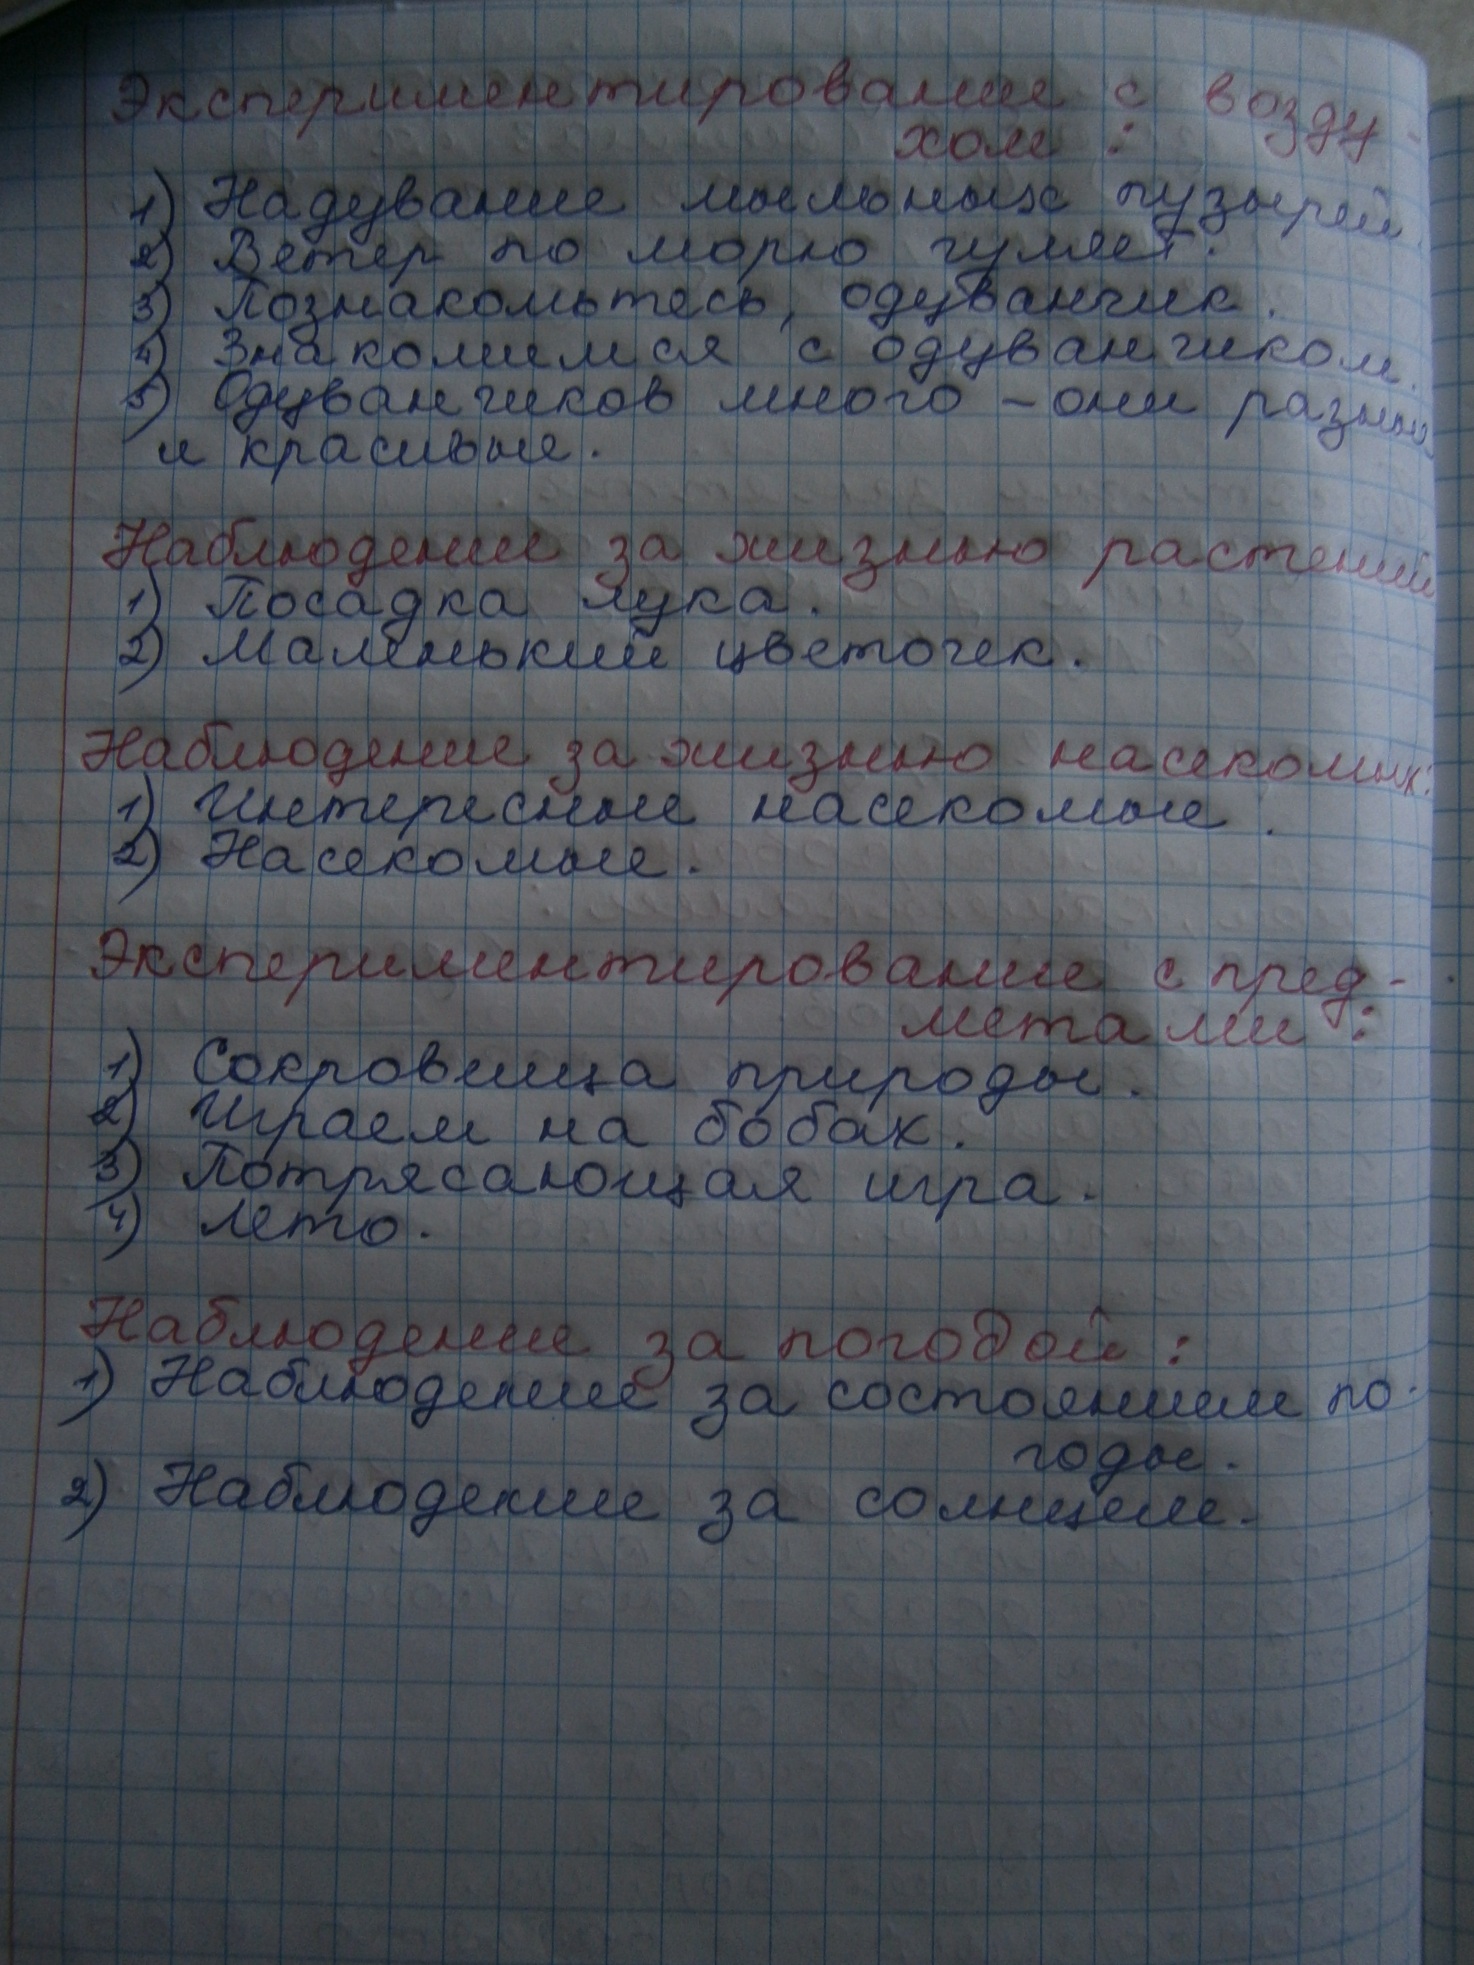 Экспериментирование с возду-
хом:
1) Надувание мыльных пузырей.
2) Ветер по морю гуляет.
3) Познакомьтесь, одуванчик.
4) Знакомимся с одуванчиком.
5) Одуванчиков много – они разные
и красивые.
Наблюдение за жизнью растений
1) Посадка лука.
2) Маленький цветочек.
Наблюдение за жизнью насекомых:
1) Интересные насекомые.
2) Насекомые.
Экспериментирование с пред-
метами:
1) Сокровища природы.
2) Играем на бобах.
3) Потрясающая игра.
4) Лето.
Наблюдение за погодой:
1) Наблюдение за состоянием по-
годы.
2) Наблюдение за солнцем.